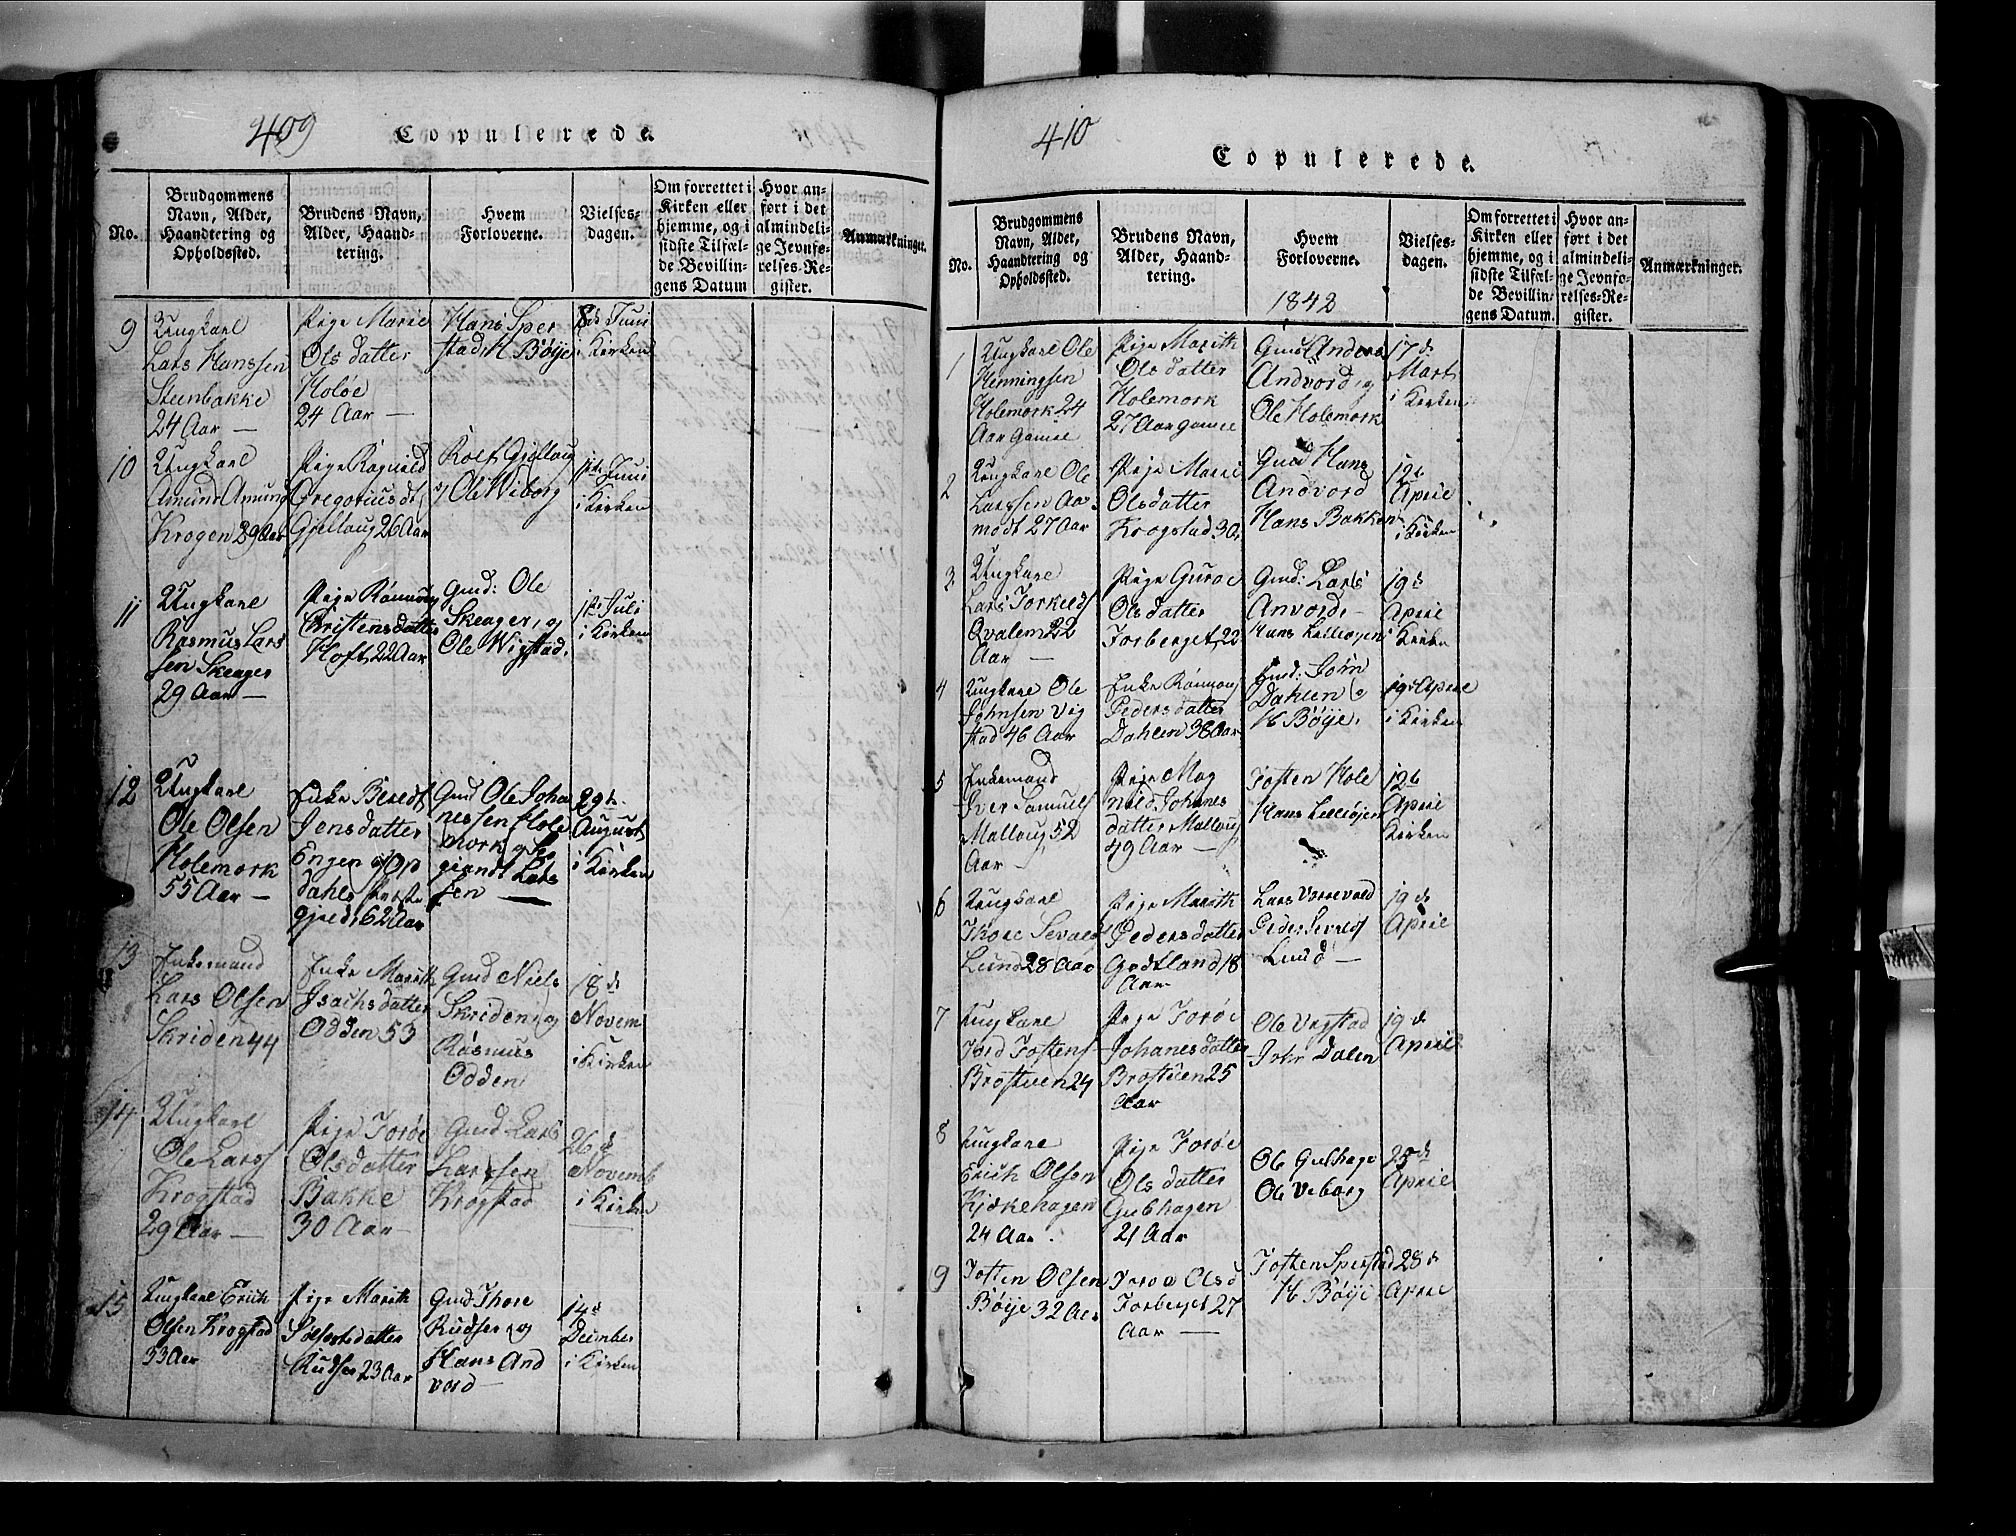 409
Copulerede.
No.
Brudgommens
Navn, Alder,
Haandtering og
Opholdssted.
Brudens Navn,
Alder, Haand-
tering.
Hvem
Forloverne.
Vielses-
dagen.
Om forrettet i
Kirken eller
hjemme, og i
sidste Tilfæl-
de Bevillin-
gens Datum
Hvor an-
ført i det
almindeli-
ge Jevnfø-
relses-Re-
gister.
Anmærkninger.
9
Ungkarl
Lars Hanssen
Steenbakke
24 Aar —
Pige Marie
Olsdatter
Holøe
24 Aar —
Hans Sper
stad, H Bøije
8de Juni
i Kirken
10
Ungkarl
Amund Amunds
Krogen 29 Aar
Pige Ragnild
Gregoriusdt
Gjellaug 26 Aar
Rolf Gjellaug
og Ole Wiborg
Juni
i Kirken
11
Ungkarl
Rasmus Lars
sen Skeager
29 Aar —
Pige Rønnoug
Christensdatter
Hoft 22 Aar
Gmd: Ole
Skeager, og
Ole Wigstad.
Juli
i Kirken
12
Ungkarl
Ole Olsen
Holemork
55 Aar —
Enke Beredt
Jensdatter
Engen og Op
dahls
62 Aar
Gmd Ole Joha
nessen Hole
mork og
Lars
sen —
29de
August
i Kirken
13
Enkemand
Lars Olsen
Skriden 44
Enke Marith
Isachsdatter
Odden 53
Gmd Niels
Skriden, og
Rasmus
Odden
18de
Novem
i Kirken
14
Ungkarl
Ole Larss
Krogstad
29 Aar —
Pige Joröe
Olsdatter
Bakke
30 Aar —
Gmd Lars
Larssen
Krogstad
26de
Novemb
i Kirken
15
Ungkarl Erich
Olsen Krogstad
53 Aar
Pige Marith
Sølfestsdatter
Rudser 23 Aar
Gmd Thore
Rudser og
Hans And
vord —
14de
Decimber
i Kirken
410
Copulerede.
No.
Brudgommens
Navn, Alder,
Haandtering og
Opholdssted.
Brudens Navn,
Alder, Haand-
tering.
Hvem
Forloverne.
1842
Vielses-
dagen.
Om forrettet i
Kirken eller
hjemme, og i
sidste Tilfæl-
de Bevillin-
gens Datum.
Hvor an-
ført i det
almindeli-
ge Jevnfø-
relses-Re-
gister.
Anmærkninger.
1
Ungkarl Ole
Henningsen
Holemork 24
Aar gamel
Pige Marith
Olsdatter
Holemork
27 Aar gamel
Gmd Anders
Andvord og
Ole Holemork
17de
Marts
i Kirken
2
Ungkarl Ole
Larssen Aa-
modt 27 Aar
Pige Marie
Olsdatter
Krogstad 30
Gmd Hans
Andvord
Hans Bakken
12te
April
i Kirken
3
Ungkarl
Lars Torkelds
Qvalem 22
Aar —
Pige Guroe
Olsdatter
Jorberget, 22
Gmd: Lars
Anvord -
Hans Lilleøgen
19de
April
Kirken
4
Ungkarl Ole
Johnsen Vig
stad 46 Aar
Enke Rønnoug
Pedersdatter
Dahlen 38 Aar
Gmd: John
Dahlen og
H Bøije.
19de April
i Kirken
5
Enkemand
Iver Samuels
Mallaug 52
Aar —
Pige Mag
nild Johanes
datter Mallaug
49 Aar —
Josten Hole
Hans Lilleøjen
12te
April
Kirken
6
Ungkarl
Thore Sevald
Lund 28 Aar
Pige Marith
Pedersdatter
Godtland 18
Aar
Lars Vorrevald
Peder Sevalds
Lund —
19de
April
7
Ungkarl
Tord Jostens
Brostuen 24
Pige Joröe
Johanesdatter
Brostuen 25
Aar
Ole Vigstad
John Dalen
19de
April
8
Ungkarl
Erich Olsen
Kirkehagen
24 Aar.
Pige Joröe
Olsdatter
Gubhagen
21 Aar
Ole Gubhage
Ole Viborg
25de
April
9
Josten Olsen
Bøije 32 Aar
Joroe Olsd
Jorberget 27
Aar —
Josten Sperstad
H Bøije
28de
April